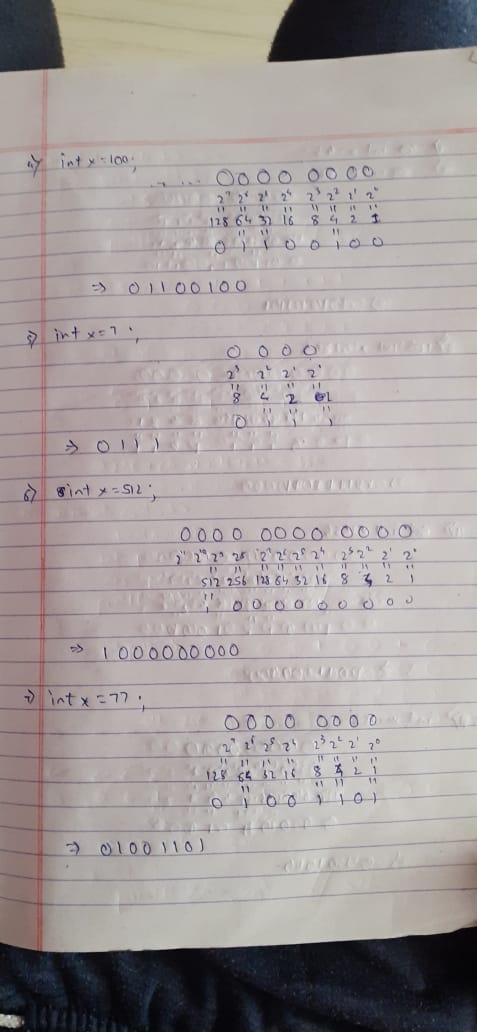 4) int x=100;
0000 0000
2⁷ 2⁶ 2⁵ 2⁴ 2³ 2² 2¹ 2⁰
128 64 32 16 8 4 2 1
0 1 1 0 0 1 0 0
⇒ 01100100
5) int x=7;
0 0 0 0
2³ 2² 2¹ 2⁰
8 4 2 1
0 1 1 1
⇒ 0111
6) int x=512;
0000 0000 0000
2¹¹ 2¹⁰ 2⁹ 2⁸ 2⁷ 2⁶ 2⁵ 2⁴ 2³ 2² 2¹ 2⁰
512 256 128 64 32 16 8 4 2 1
1 0 0 0 0 0 0 0 0 0
⇒ 1000000000
7) int x=77;
0000 0000
2⁷ 2⁶ 2⁵ 2⁴ 2³ 2² 2¹ 2⁰
128 64 32 16 8 4 2 1
0 1 0 0 1 1 0 1
⇒ 01001101